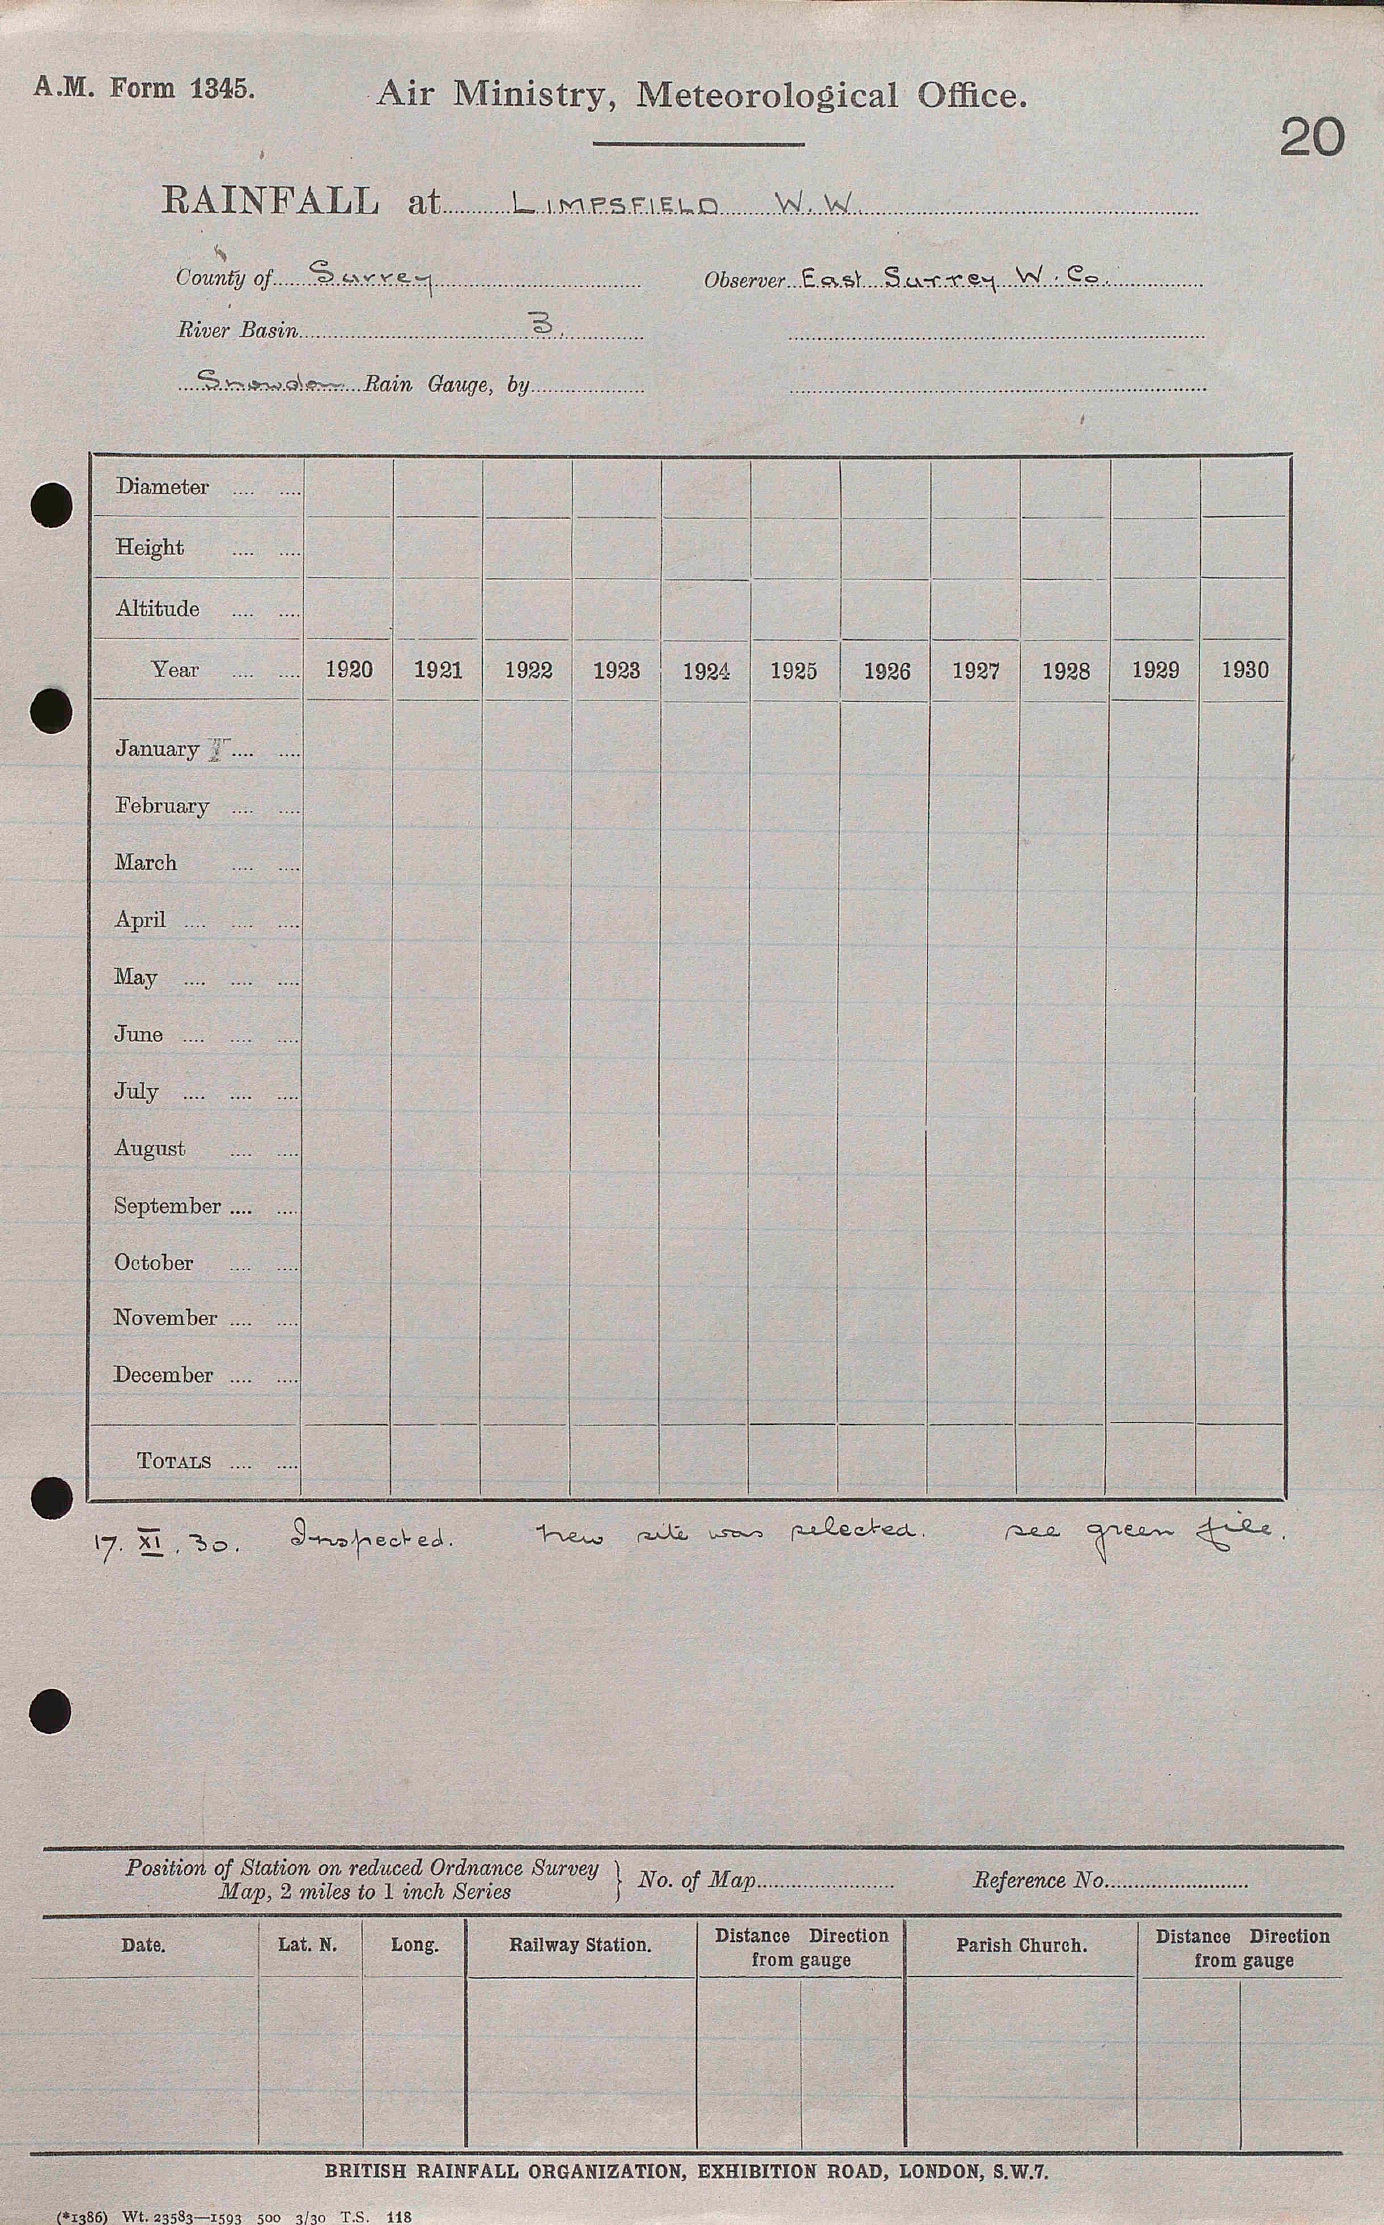 A.M. Form 1345.
Air Ministry, Meteorological Office.
20
RAINFALL at LIMPSFIELD W.W.
County of Surrey
Observer East Surrey W. Co.
River Basin 3.
Snowdon Rain Gauge, by
Diameter
Height
Altitude
Year 1920 1921 1922 1923 1924 1925 1926 1927 1928 1929 1930
January
February
March
April
May
June
July
August
September
October
November
December
TOTALS
17. XI. 30. Inspected. New site was selected. see green file.
Position of Station on reduced Ordnance Survey
Map, 2 miles to 1 inch Series } No. of Map Reference No.
Date. Lat. N. Long. Railway Station. Distance Direction from gauge Parish Church. Distance Direction from gauge
BRITISH RAINFALL ORGANIZATION, EXHIBITION ROAD, LONDON, S.W.7.
(*1386) Wt. 23583—1593 500 3/30 T.S. 118